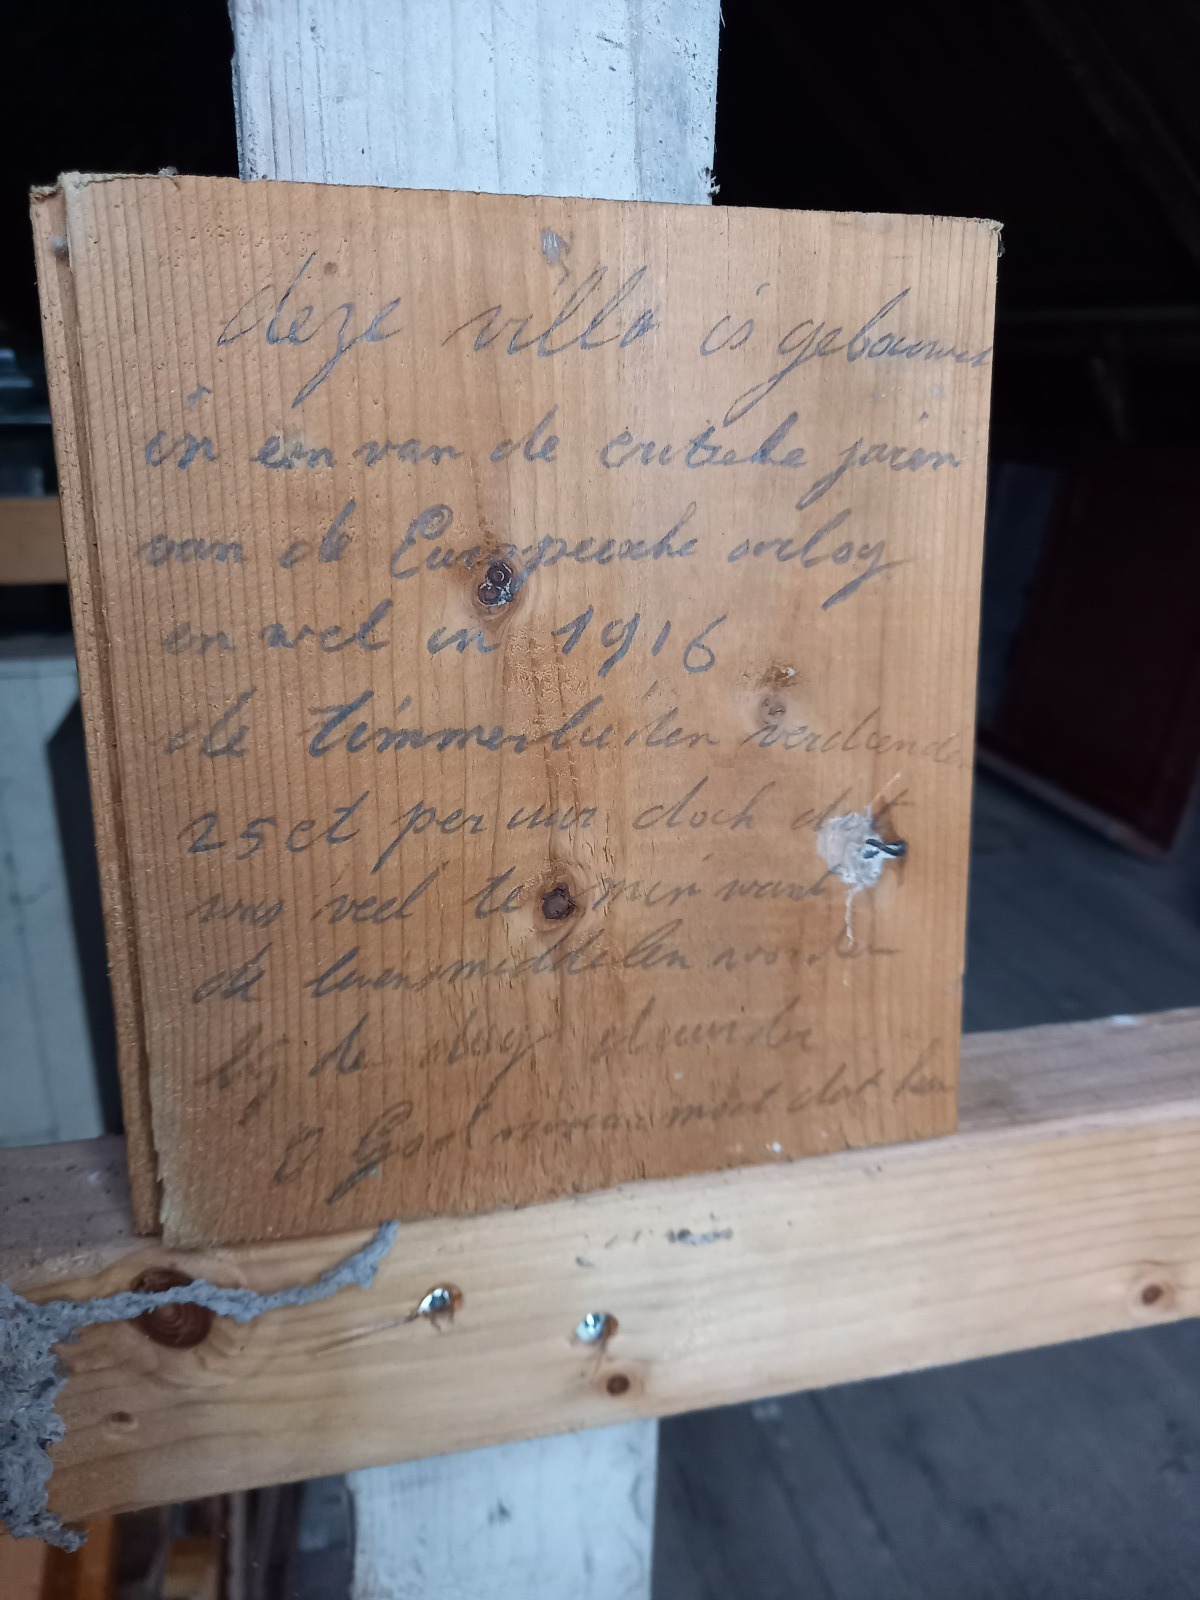 deze villa is gebouwd
in een van de jaren
van de Europeesche orlog
en wel in 1916
de timmerluiden verdiende
25 ct per uur doch dat
was veel te min want
de levensmiddelen worden
bij de dag duurder
O God waar moet dat heen